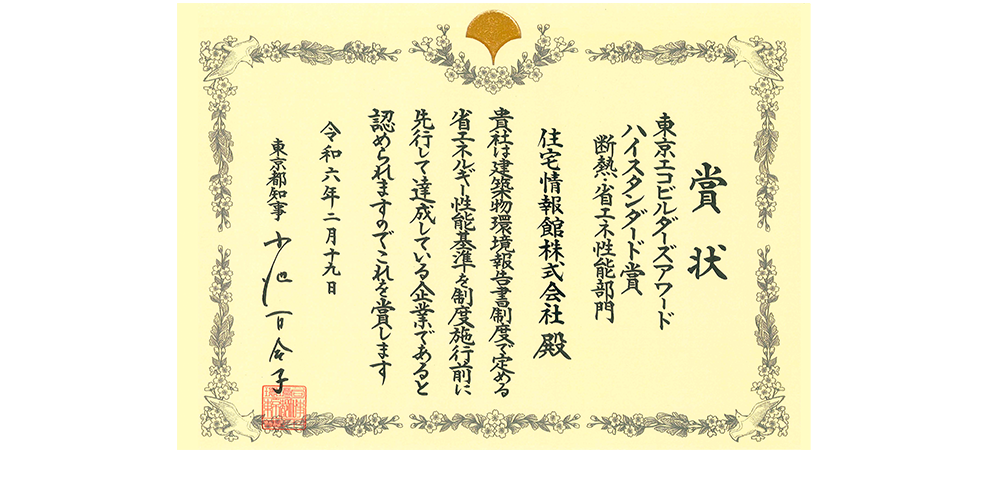 賞状
東京エコビルダーズアワード
ハイスタンダード賞
断熱・省エネ性能部門
住宅情報館株式会社殿
貴社は建築物環境報告書制度で定める
省エネルギー性能基準を制度施行前に
先行して達成している企業であると
認められますのでこれを賞します
令和六年二月十九日
東京都知事 小池百合子